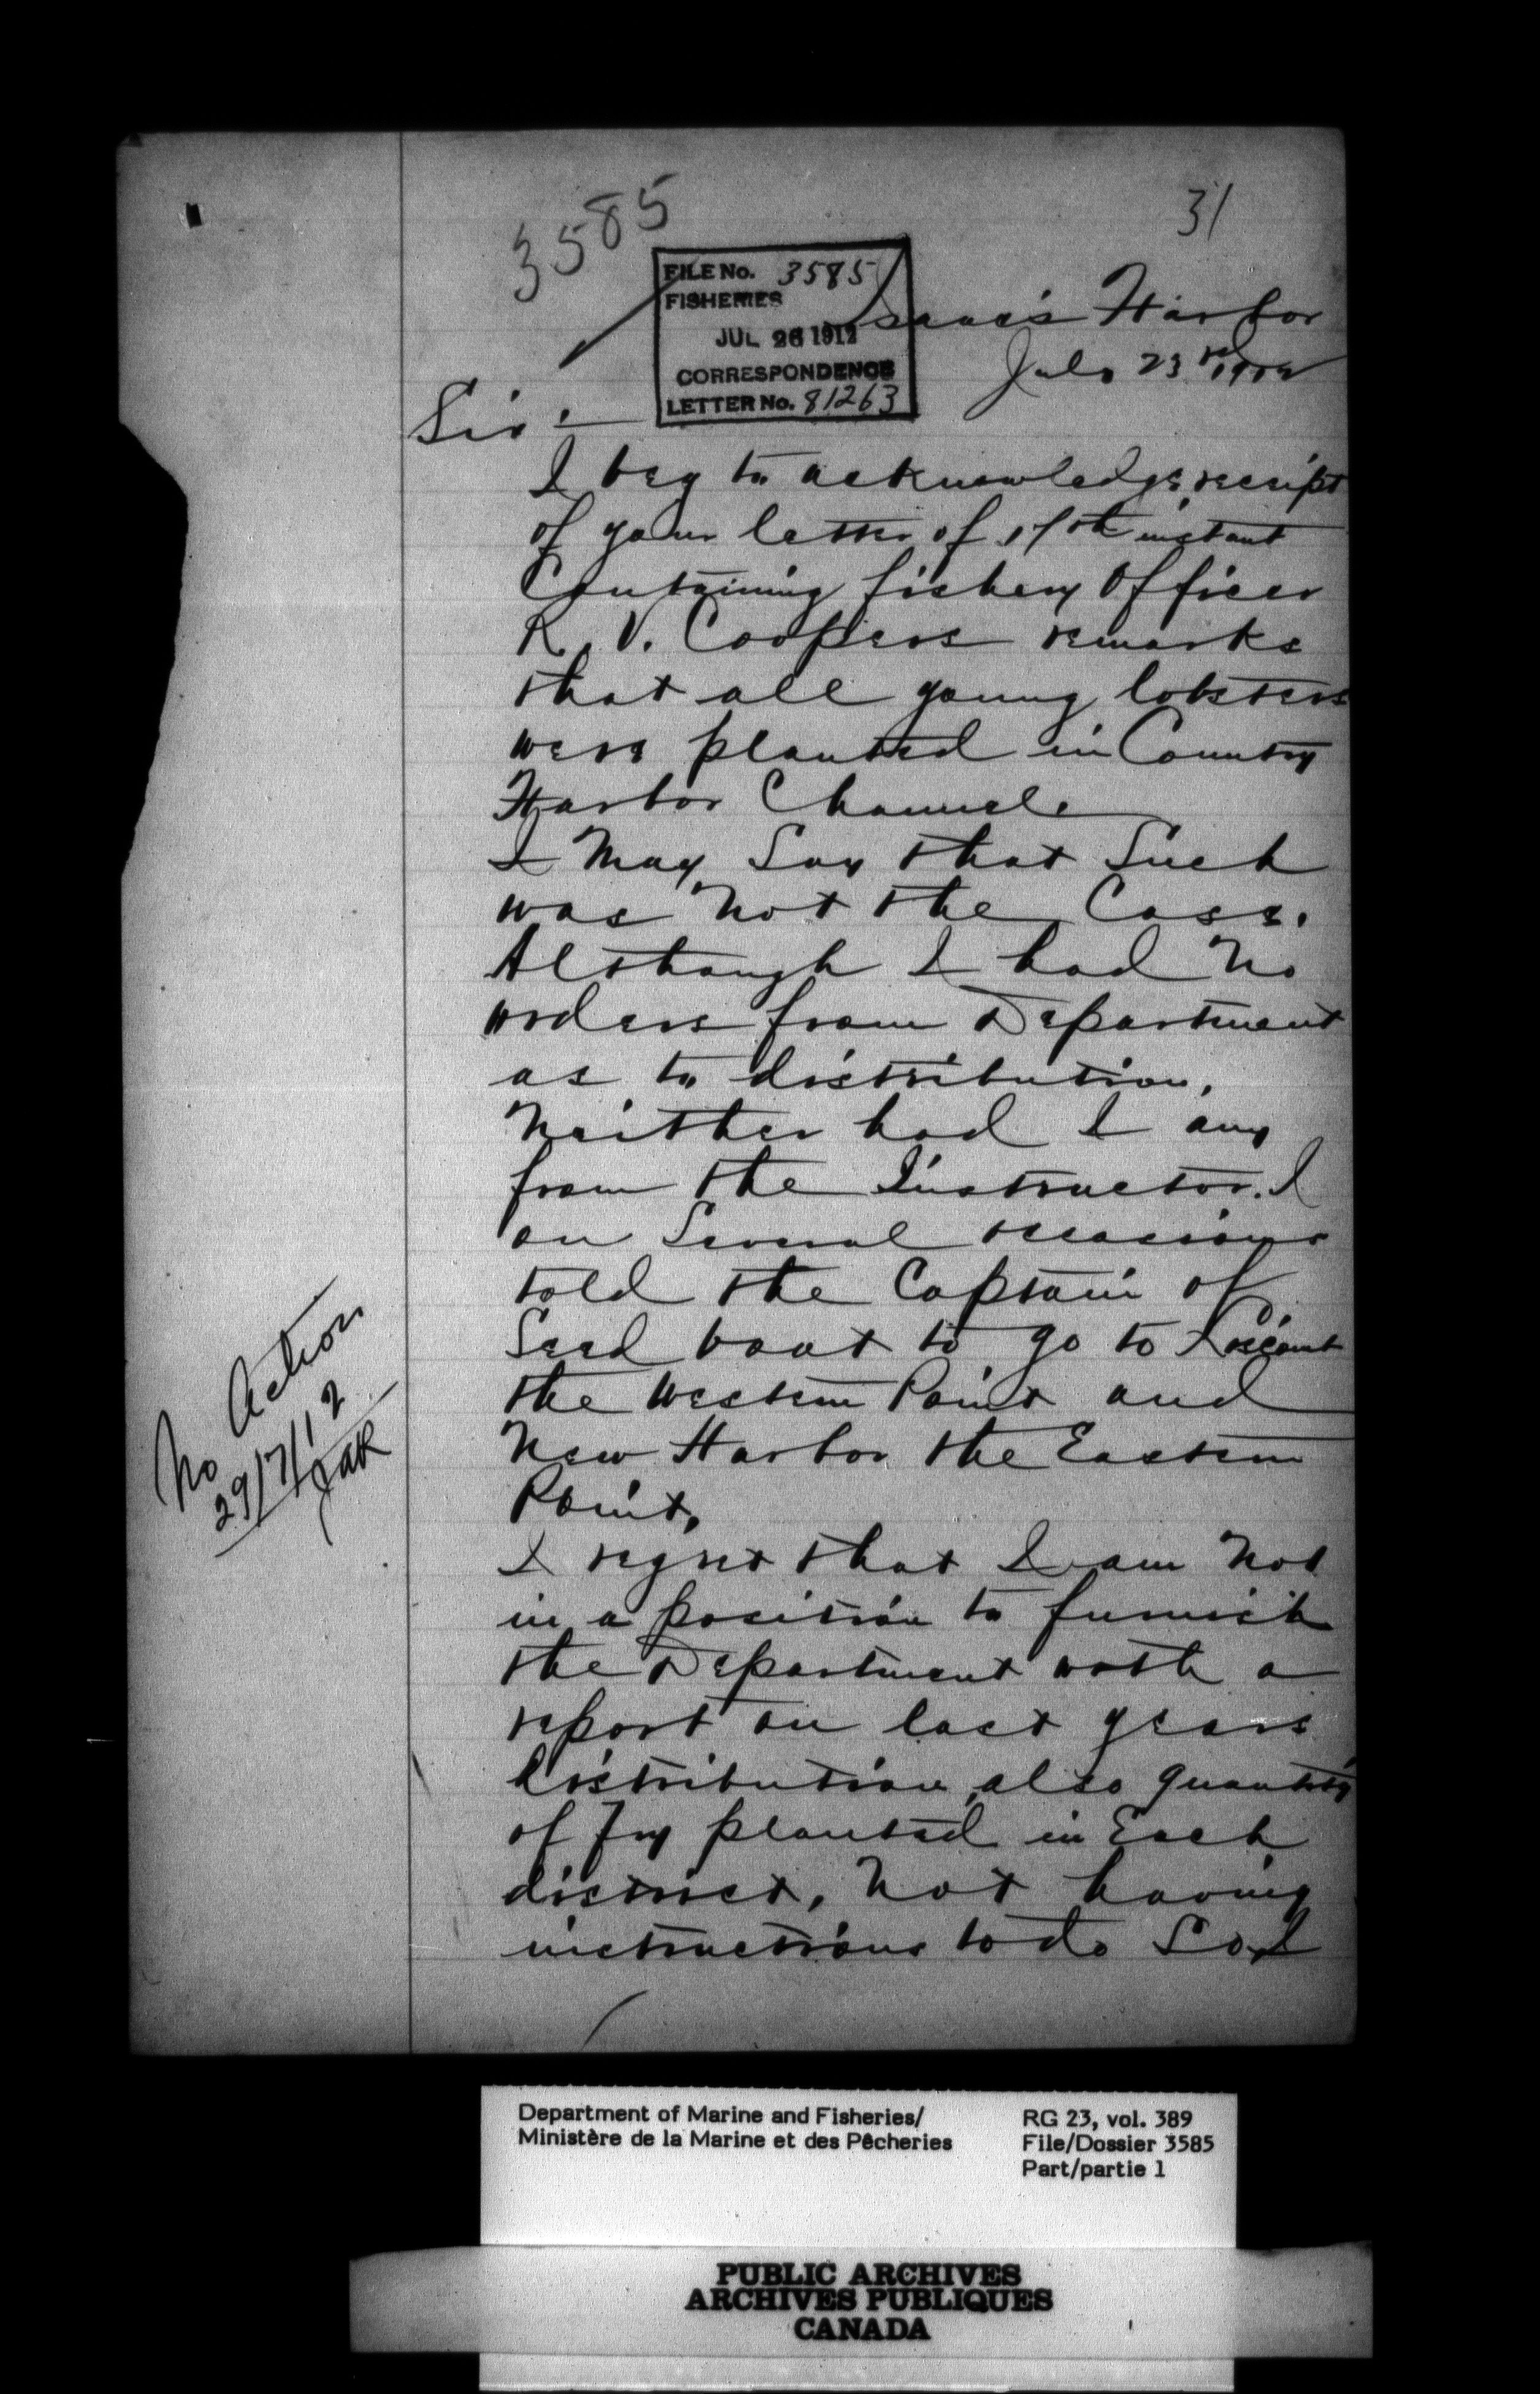 3585
31
FILE No. 3585
FISHERIES
JUL 26 1912
CORRESPONDENCE
LETTER No. 81263
Isaac's Harbor
July 23rd 1912
Sir :—
I beg to acknowledge receipt
of your letter of 17th instant
Containing fishery Officer
R. V. Coopers remarks
that all young lobsters
were planted in Country
Harbor Channel
I May Say that Such
was Not the Case.
Although I had No
orders from Department
as to distribution,
Neither had I any
from the Instructor. I
on Several occasions
told the Captain of
Seed boat to go to
the Western Point and
New Harbor the Eastern
Point,
I regret that I am Not
in a position to furnish
the Department with a
report on last years
distribution, also quantity
of Fry planted in Each
district, Not having
instructions to do So I
No Action
29/7/12
Department of Marine and Fisheries/
Ministère de la Marine et des Pêcheries
RG 23, vol. 389
File/Dossier 3585
Part/partie 1
PUBLIC ARCHIVES
ARCHIVES PUBLIQUES
CANADA